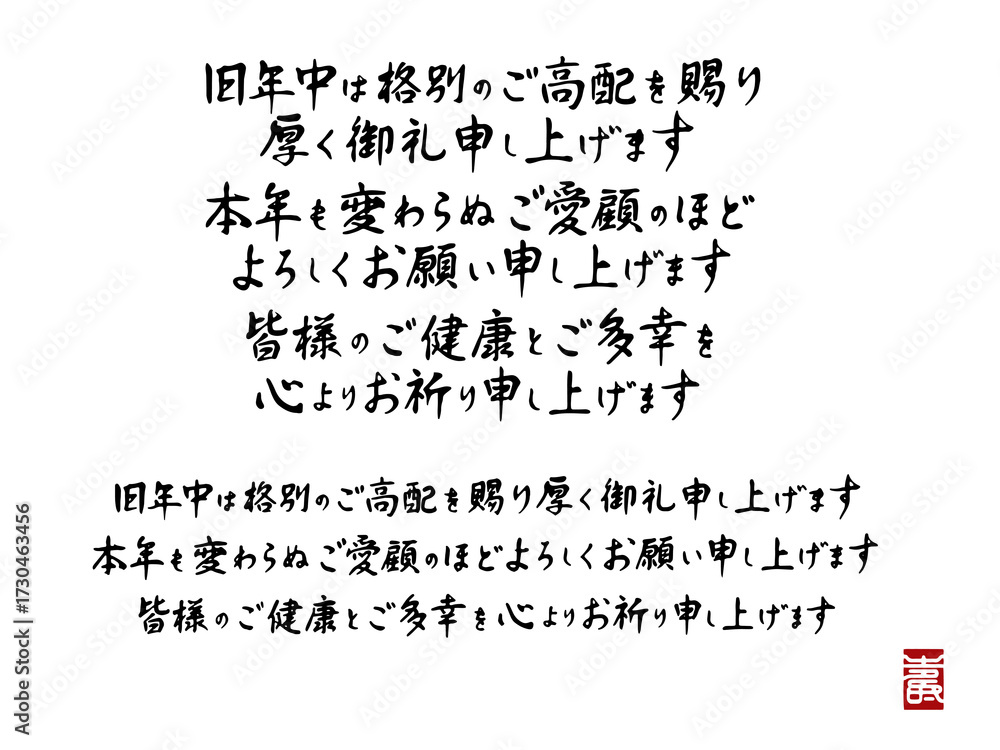 旧年中は格別のご高配を賜り
厚く御礼申し上げます
本年も変わらぬご愛顧のほど
よろしくお願い申し上げます
皆様のご健康とご多幸を
心よりお祈り申し上げます
旧年中は格別のご高配を賜り厚く御礼申し上げます
本年も変わらぬご愛顧のほどよろしくお願い申し上げます
皆様のご健康とご多幸を心よりお祈り申し上げます
Adobe Stock | #1730463456